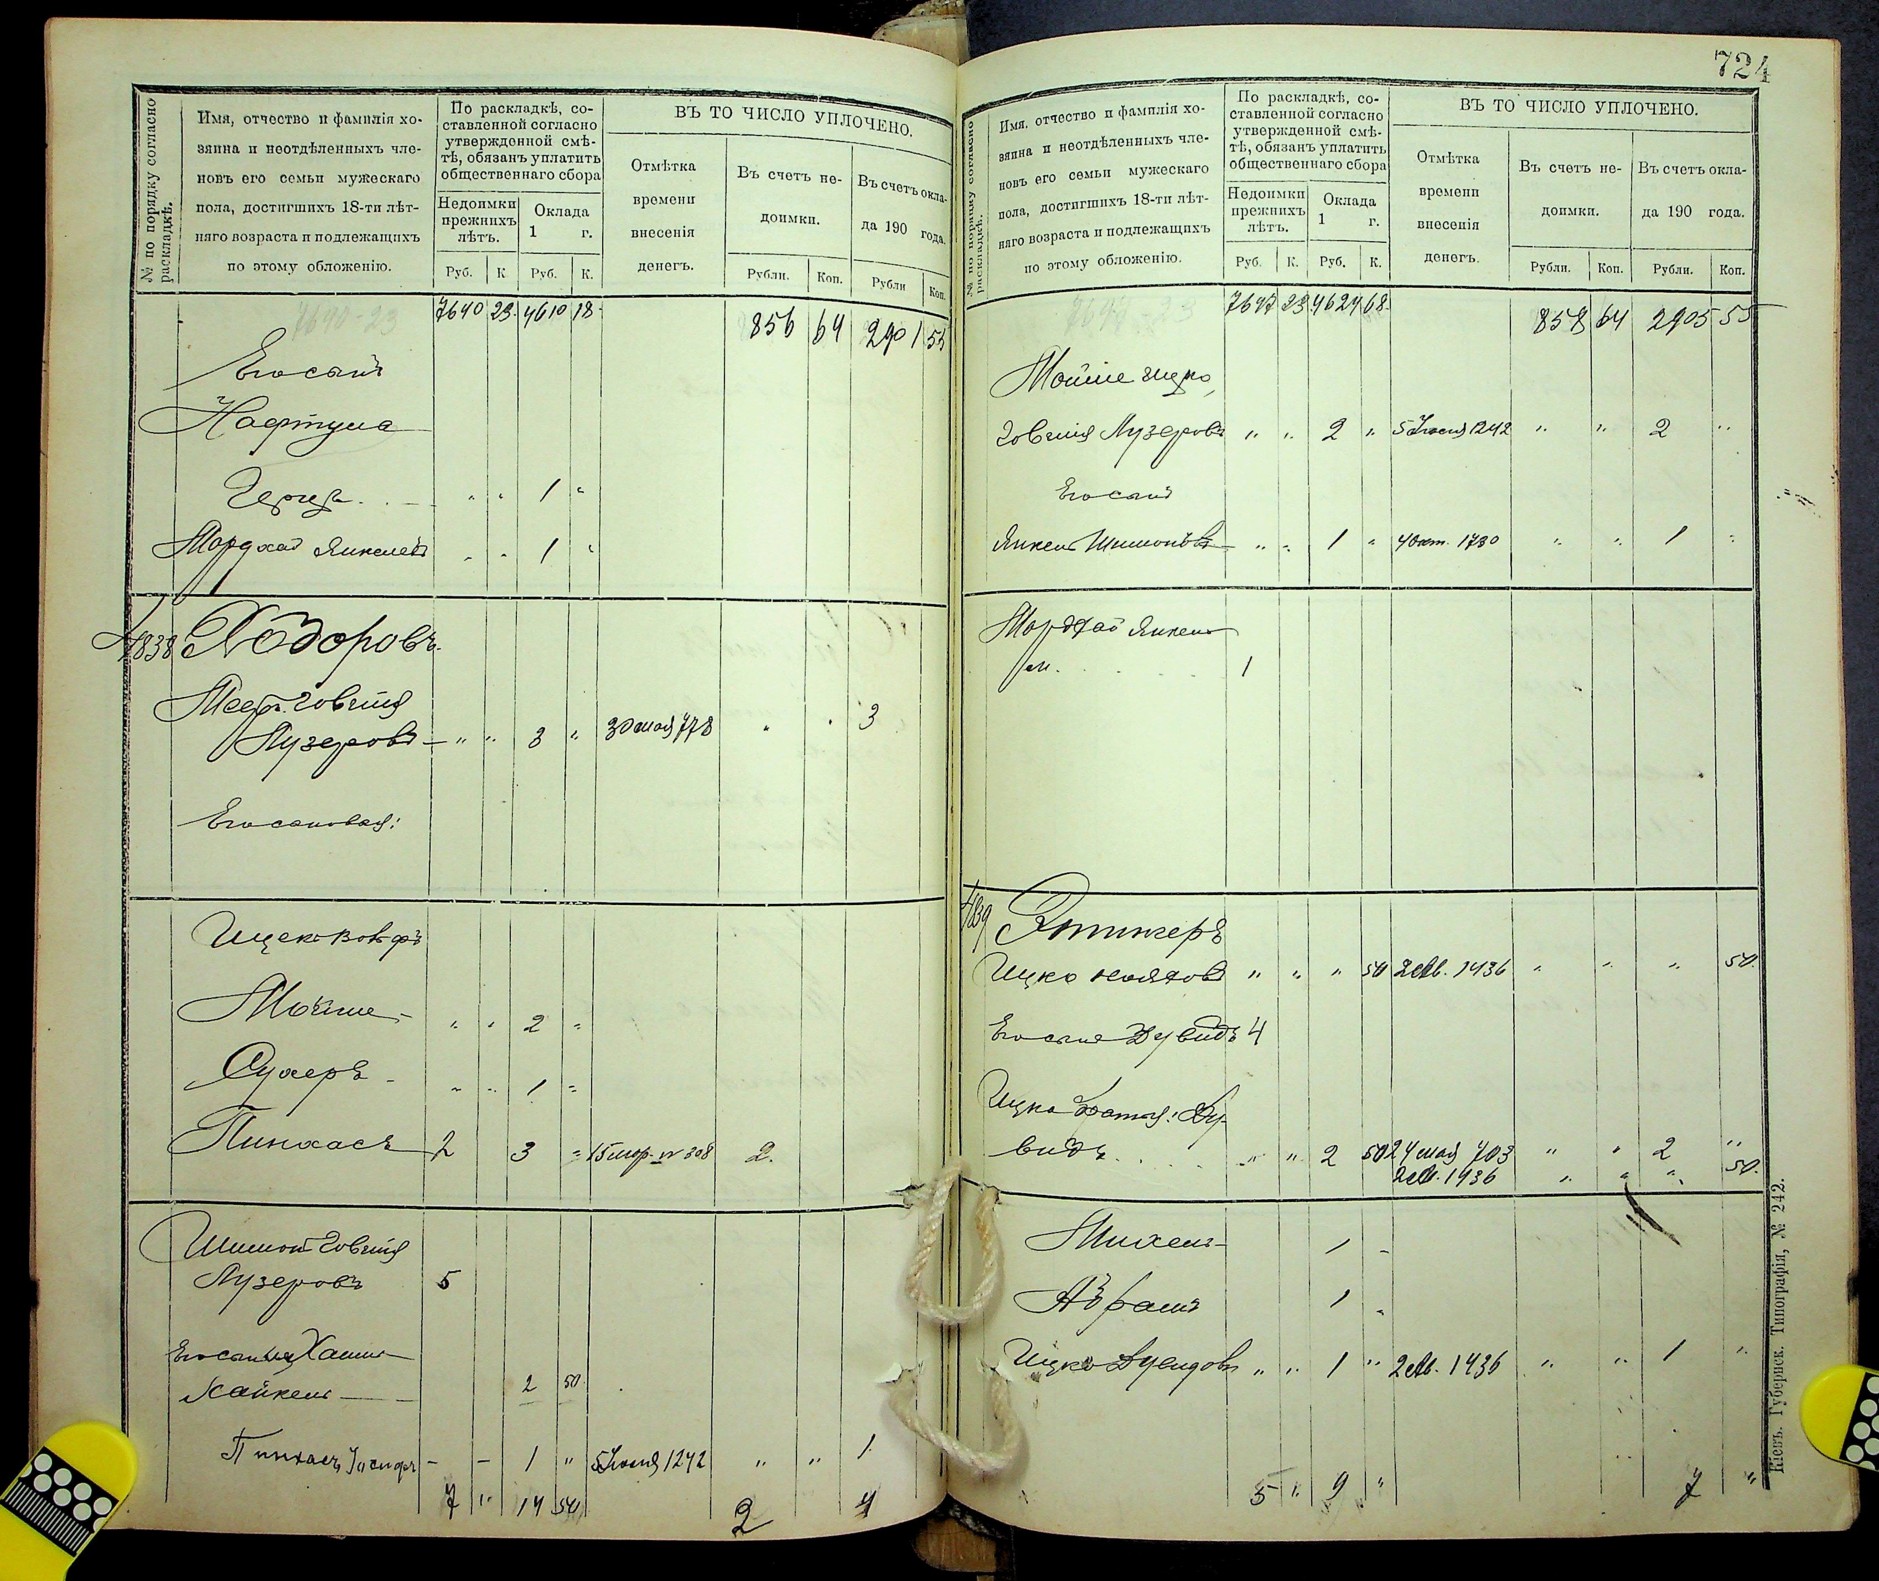 № по порядку согласно раскладкѣ.
Имя, отчество и фамилія хо-
зяина и неотдѣленныхъ чле-
новъ его семьи мужескаго
пола, достигшихъ 18-ти лѣт-
няго возраста и подлежащихъ
по этому обложенію.
По раскладкѣ, со-
ставленной согласно
утвержденной смѣ-
тѣ, обязанъ уплатить
общественнаго сбора
Недоимки
прежнихъ
лѣтъ.
Оклада
1 г.
Руб. К. Руб. К.
ВЪ ТО ЧИСЛО УПЛОЧЕНО.
Отмѣтка
времени
внесенія
денегъ.
Въ счетъ не-
доимки.
Въ счетъ окла-
да 190 года.
Рубли. Коп. Рубли Коп.
7640 23 4610 18 856 64 2901 55
Его сынъ
Нафтула
Герцъ " " 1 "
Мордхай Янкелев " " 1 "
4838 Ходоровъ
Меер Iовсiя
Лузеровъ " " 3 " 30 мая 778 " " 3
Его сыновья:
Ицек Вольфъ
Мойше " " 2 "
Сухеръ " " 1 "
Пинхасъ 2 3 " 15 мар. № 308 2.
Шимон Iовсiя
Лузеровъ 5
Его сынья Хаим
Хайкель 2 50
Пинхасъ Iосифъ - - 1 " 5 Iюня 1242 " " 1
7 " 14 50 2 4
724
№ по порядку согласно раскладкѣ.
Имя, отчество и фамилія хо-
зяина и неотдѣленныхъ чле-
новъ его семьи мужескаго
пола, достигшихъ 18-ти лѣт-
няго возраста и подлежащихъ
по этому обложенію.
По раскладкѣ, со-
ставленной согласно
утвержденной смѣ-
тѣ, обязанъ уплатить
общественнаго сбора
Недоимки
прежнихъ
лѣтъ.
Оклада
1 г.
Руб. К. Руб. К.
ВЪ ТО ЧИСЛО УПЛОЧЕНО.
Отмѣтка
времени
внесенія
денегъ.
Въ счетъ не-
доимки.
Въ счетъ окла-
да 190 года.
Рубли. Коп. Рубли. Коп.
7647 23 4624 68 858 64 2905 55
Мойше Ицко
Iовсiя Лузеровъ " " 2 " 5 Iюня 1242 " " 2 "
Его сынъ
Янкель Шимонов " " 1 " 4 окт. 1730 " " 1 "
Мордхай Янкель
1
4839 Этингеръ
Ицко " " " 50 2 ав. 1436 " " " 50
Его сынъ Дувидъ 4
Ицка братья: Ду-
видъ " " 2 50 24 мая 703 " " 2 "
2 ав. 1436 " " " 50.
Михель 1 -
Абрамъ 1 "
Ицко Дувидовъ " " 1 " 2 ав. 1436 " " 1 "
5 " 9 " 7 "
Кіевъ. Губернск. Типографія, № 242.